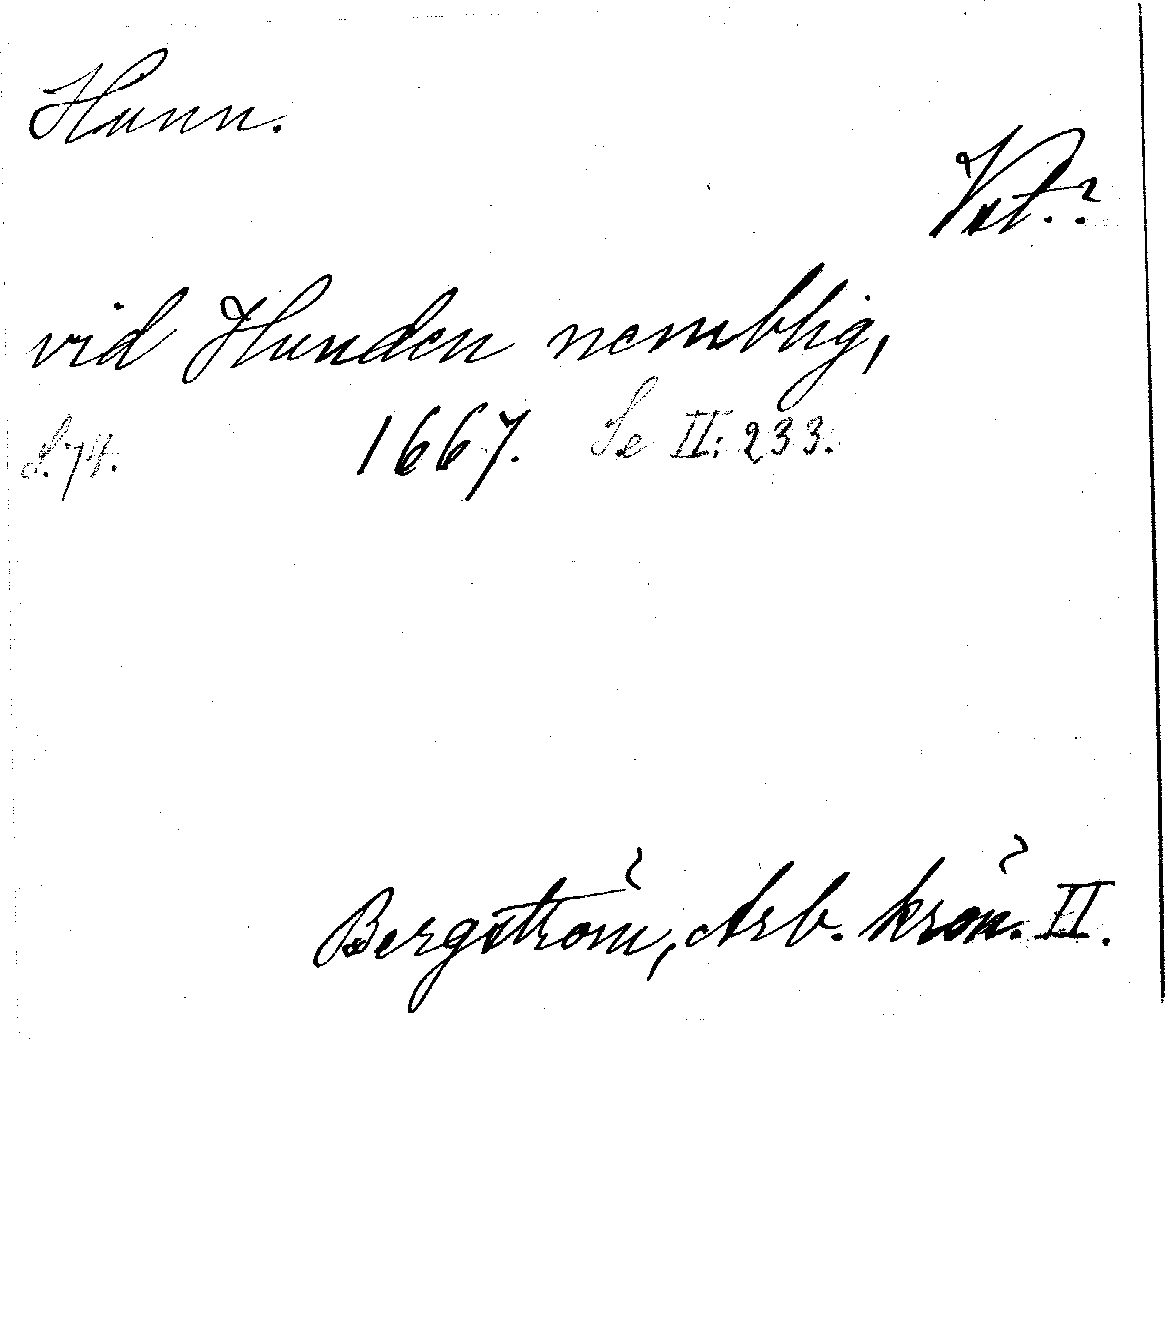 Hunn.
Vut.?
vid Hunden nemblig,
S. 74. 1667. Se II: 233.
Bergström, Arb. krön. II.